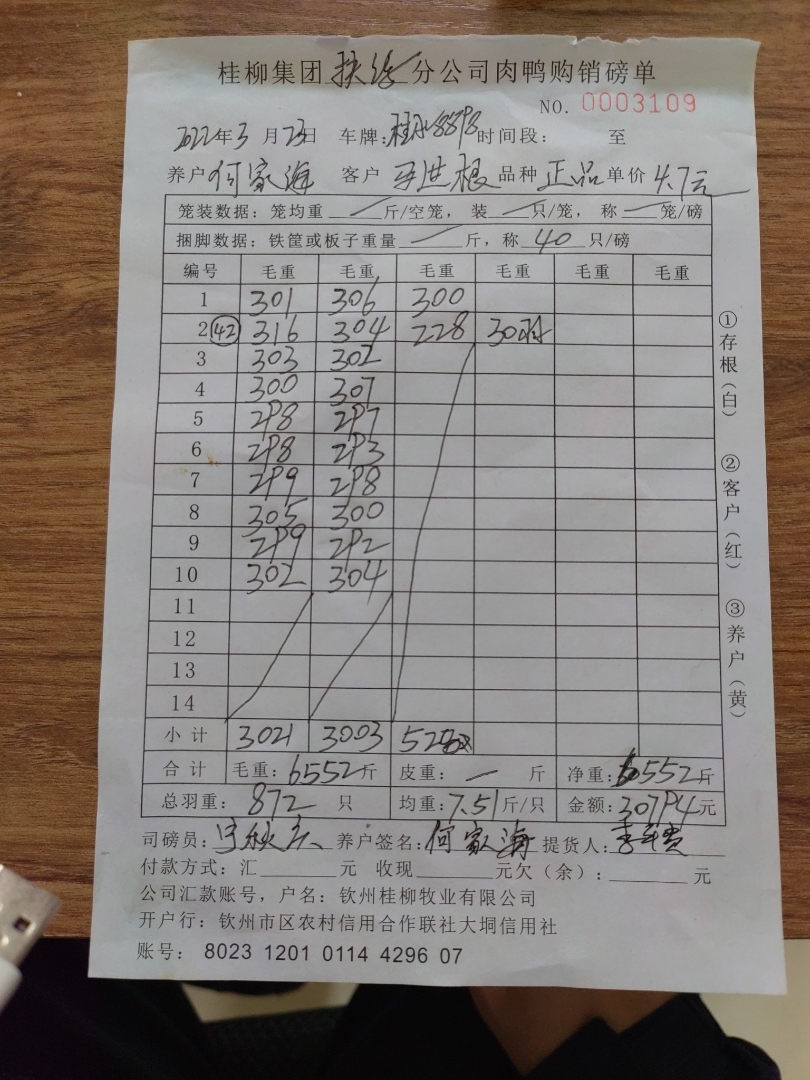 桂柳集团扶绥分公司肉鸭购销磅单
NO. 0003109
2022年3月23日 车牌:桂 8898 时间段: 至
养户 何家海 客户 根 品种 正品 单价 4.7元
笼装数据:笼均重 / 斤/空笼, 装 / 只/笼, 称 / 笼/磅
捆脚数据:铁筐或板子重量 / 斤,称 40 只/磅
编号 毛重 毛重 毛重 毛重 毛重 毛重
1 301 306 300
2 (42) 316 304 228 30羽
3 303 302
4 300 307
5 298 297
6 298 293
7 299 298
8 305 300
9 299 292
10 302 304
11
12
13
14
小计 3021 3003 528
合计 毛重:6552斤 皮重: / 斤 净重:6552斤
总羽重: 872 只 均重:7.51斤/只 金额:30794元
司磅员: 养户签名:何家海 提货人:
付款方式:汇 元 收现 元欠(余): 元
公司汇款账号,户名:钦州桂柳牧业有限公司
开户行:钦州市区农村信用合作联社大垌信用社
账号: 8023 1201 0114 4296 07
①存根(白) ②客户(红) ③养户(黄)